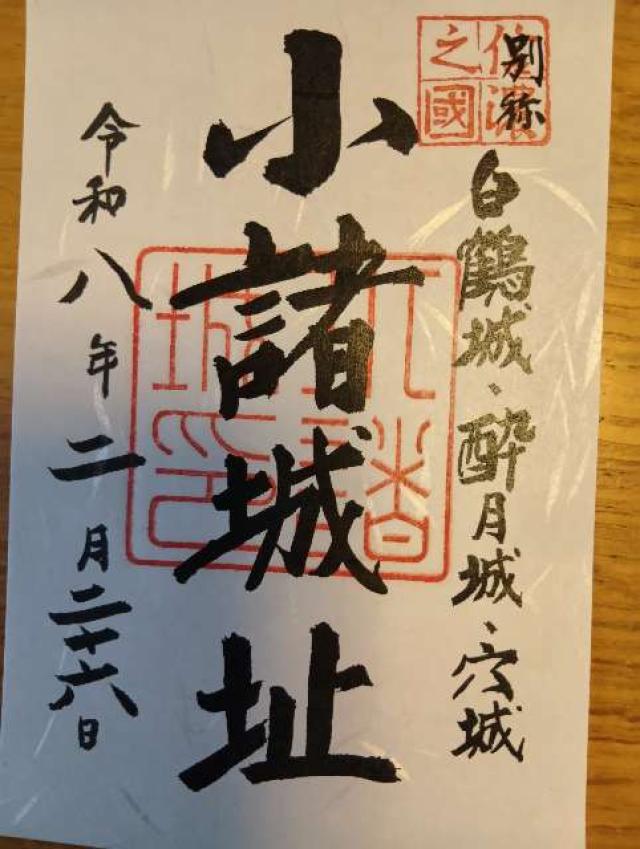 信濃之國
別称 白鶴城、酔月城、穴城
小諸城址
小諸城印
令和八年二月二十六日